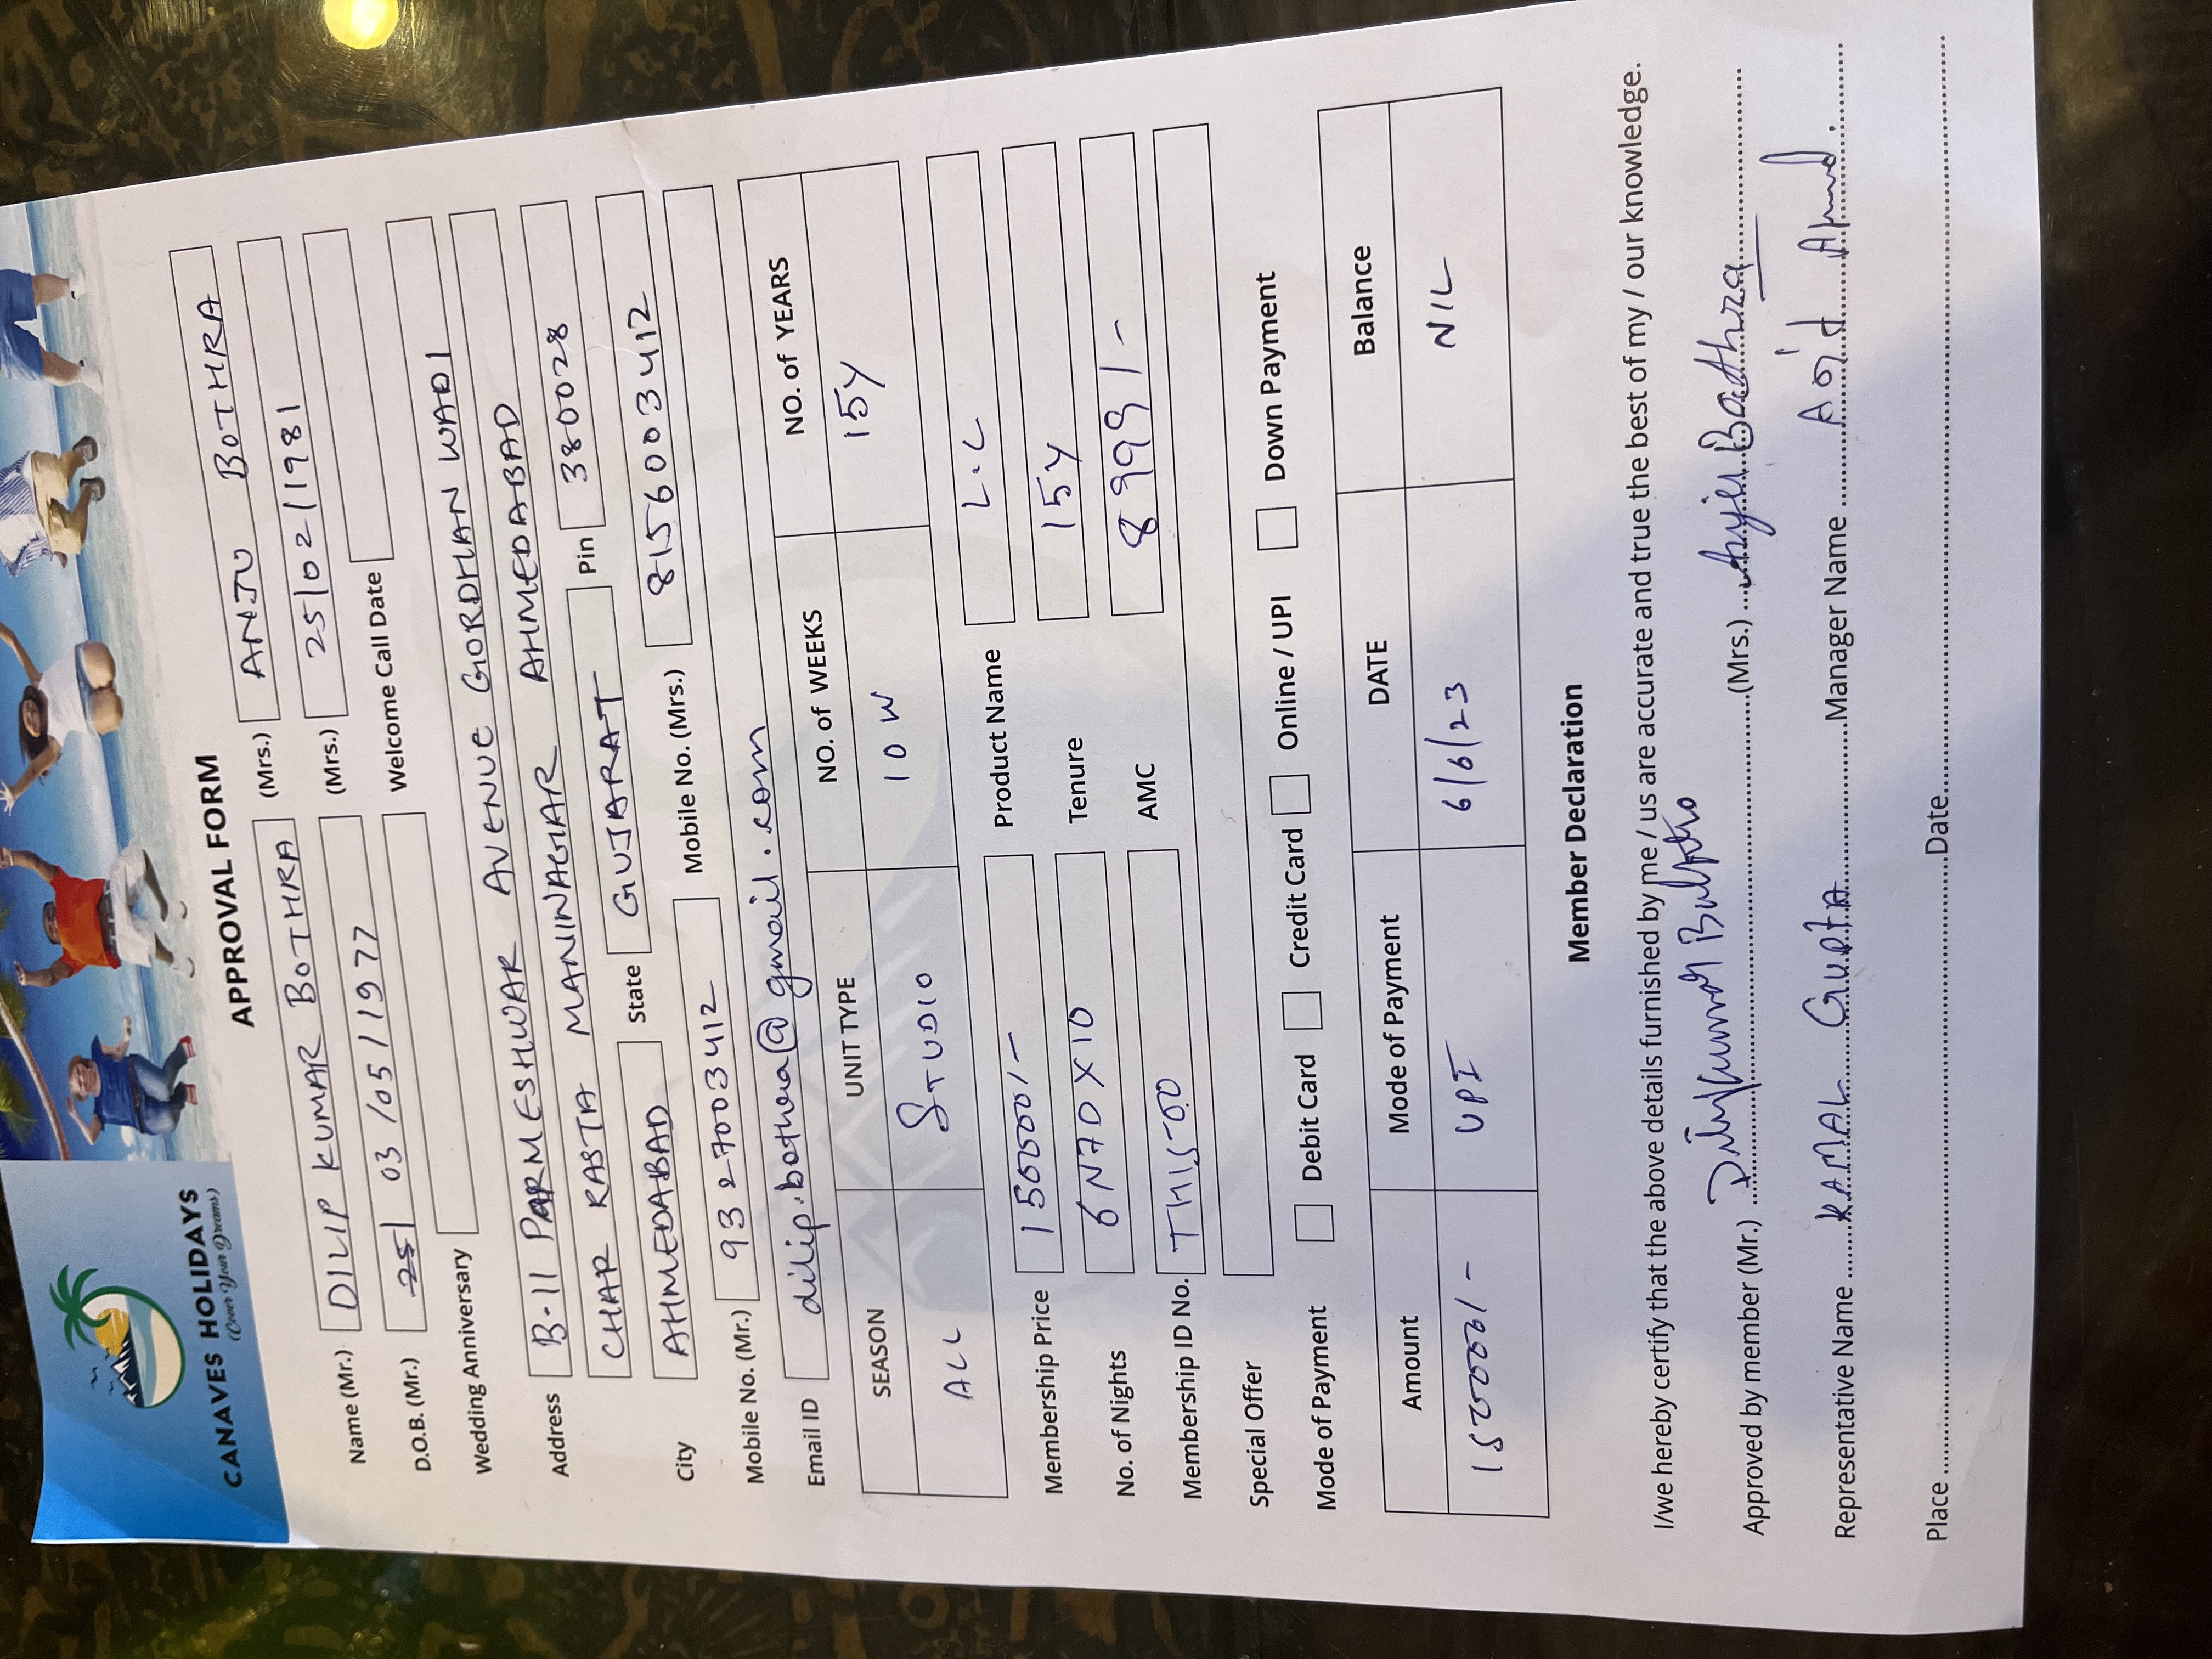 CANAVES HOLIDAYS
(Cover Your Dreams)
APPROVAL FORM
Name (Mr.) DILIP KUMAR BOTHRA (Mrs.) ANJU BOTHRA
D.O.B. (Mr.) 03/05/1977 (Mrs.) 25/02/1981
Wedding Anniversary Welcome Call Date
Address B-11 PARMESHWAR AVENUE GORDHAN WADI
CHAR RASTA MANINAGAR AHMEDABAD
City AHMEDABAD State GUJARAT Pin 380028
Mobile No. (Mr.) 9327003412 Mobile No. (Mrs.) 8156003412
Email ID dilip.bothra@gmail.com
SEASON UNIT TYPE NO. of WEEKS NO. of YEARS
ALL STUDIO 10 W 15Y
Membership Price 150000/- Product Name L.C
No. of Nights 6N7D X 10 Tenure 15Y
Membership ID No. AMC 8999/-
Special Offer
Mode of Payment Debit Card Credit Card Online / UPI Down Payment
Amount Mode of Payment DATE Balance
150000/- UPI 6/6/23 NIL
Member Declaration
I/we hereby certify that the above details furnished by me / us are accurate and true the best of my / our knowledge.
Approved by member (Mr.) (Mrs.) Anju Bothra
Representative Name KAMAL GUPTA Manager Name
Place Date